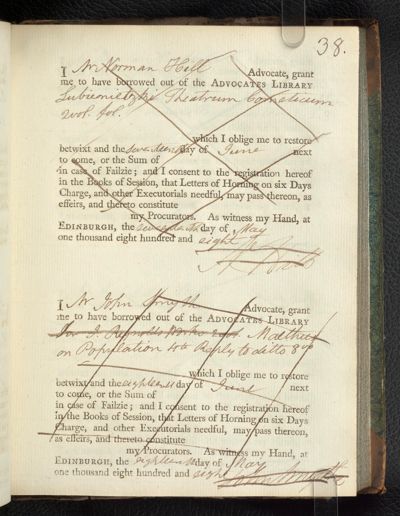 38.
I Mr Norman Hill Advocate, grant
me to have borrowed out of the ADVOCATES LIBRARY
Lubienietzki Theatrum Cometicum
2 vol. fol.
which I oblige me to restore
betwixt and the seventeenth day of June next
to come, or the Sum of
in case of Failzie; and I consent to the registration hereof
in the Books of Session, that Letters of Horning on six Days
Charge, and other Executorials needful, may pass thereon, as
effeirs, and thereto constitute
my Procurators. As witness my Hand, at
EDINBURGH, the seventeenth day of May
one thousand eight hundred and eight
I Mr John Smyth Advocate, grant
me to have borrowed out of the ADVOCATES LIBRARY
Sir J. Reynolds Works 2 vol. Malthus
on Population 4to Reply to ditto 8vo
which I oblige me to restore
betwixt and the eighteenth day of June next
to come, or the Sum of
in case of Failzie; and I consent to the registration hereof
in the Books of Session, that Letters of Horning on six Days
Charge, and other Executorials needful, may pass thereon,
as effeirs, and thereto constitute
my Procurators. As witness my Hand, at
EDINBURGH, the eighteenth day of May
one thousand eight hundred and eight